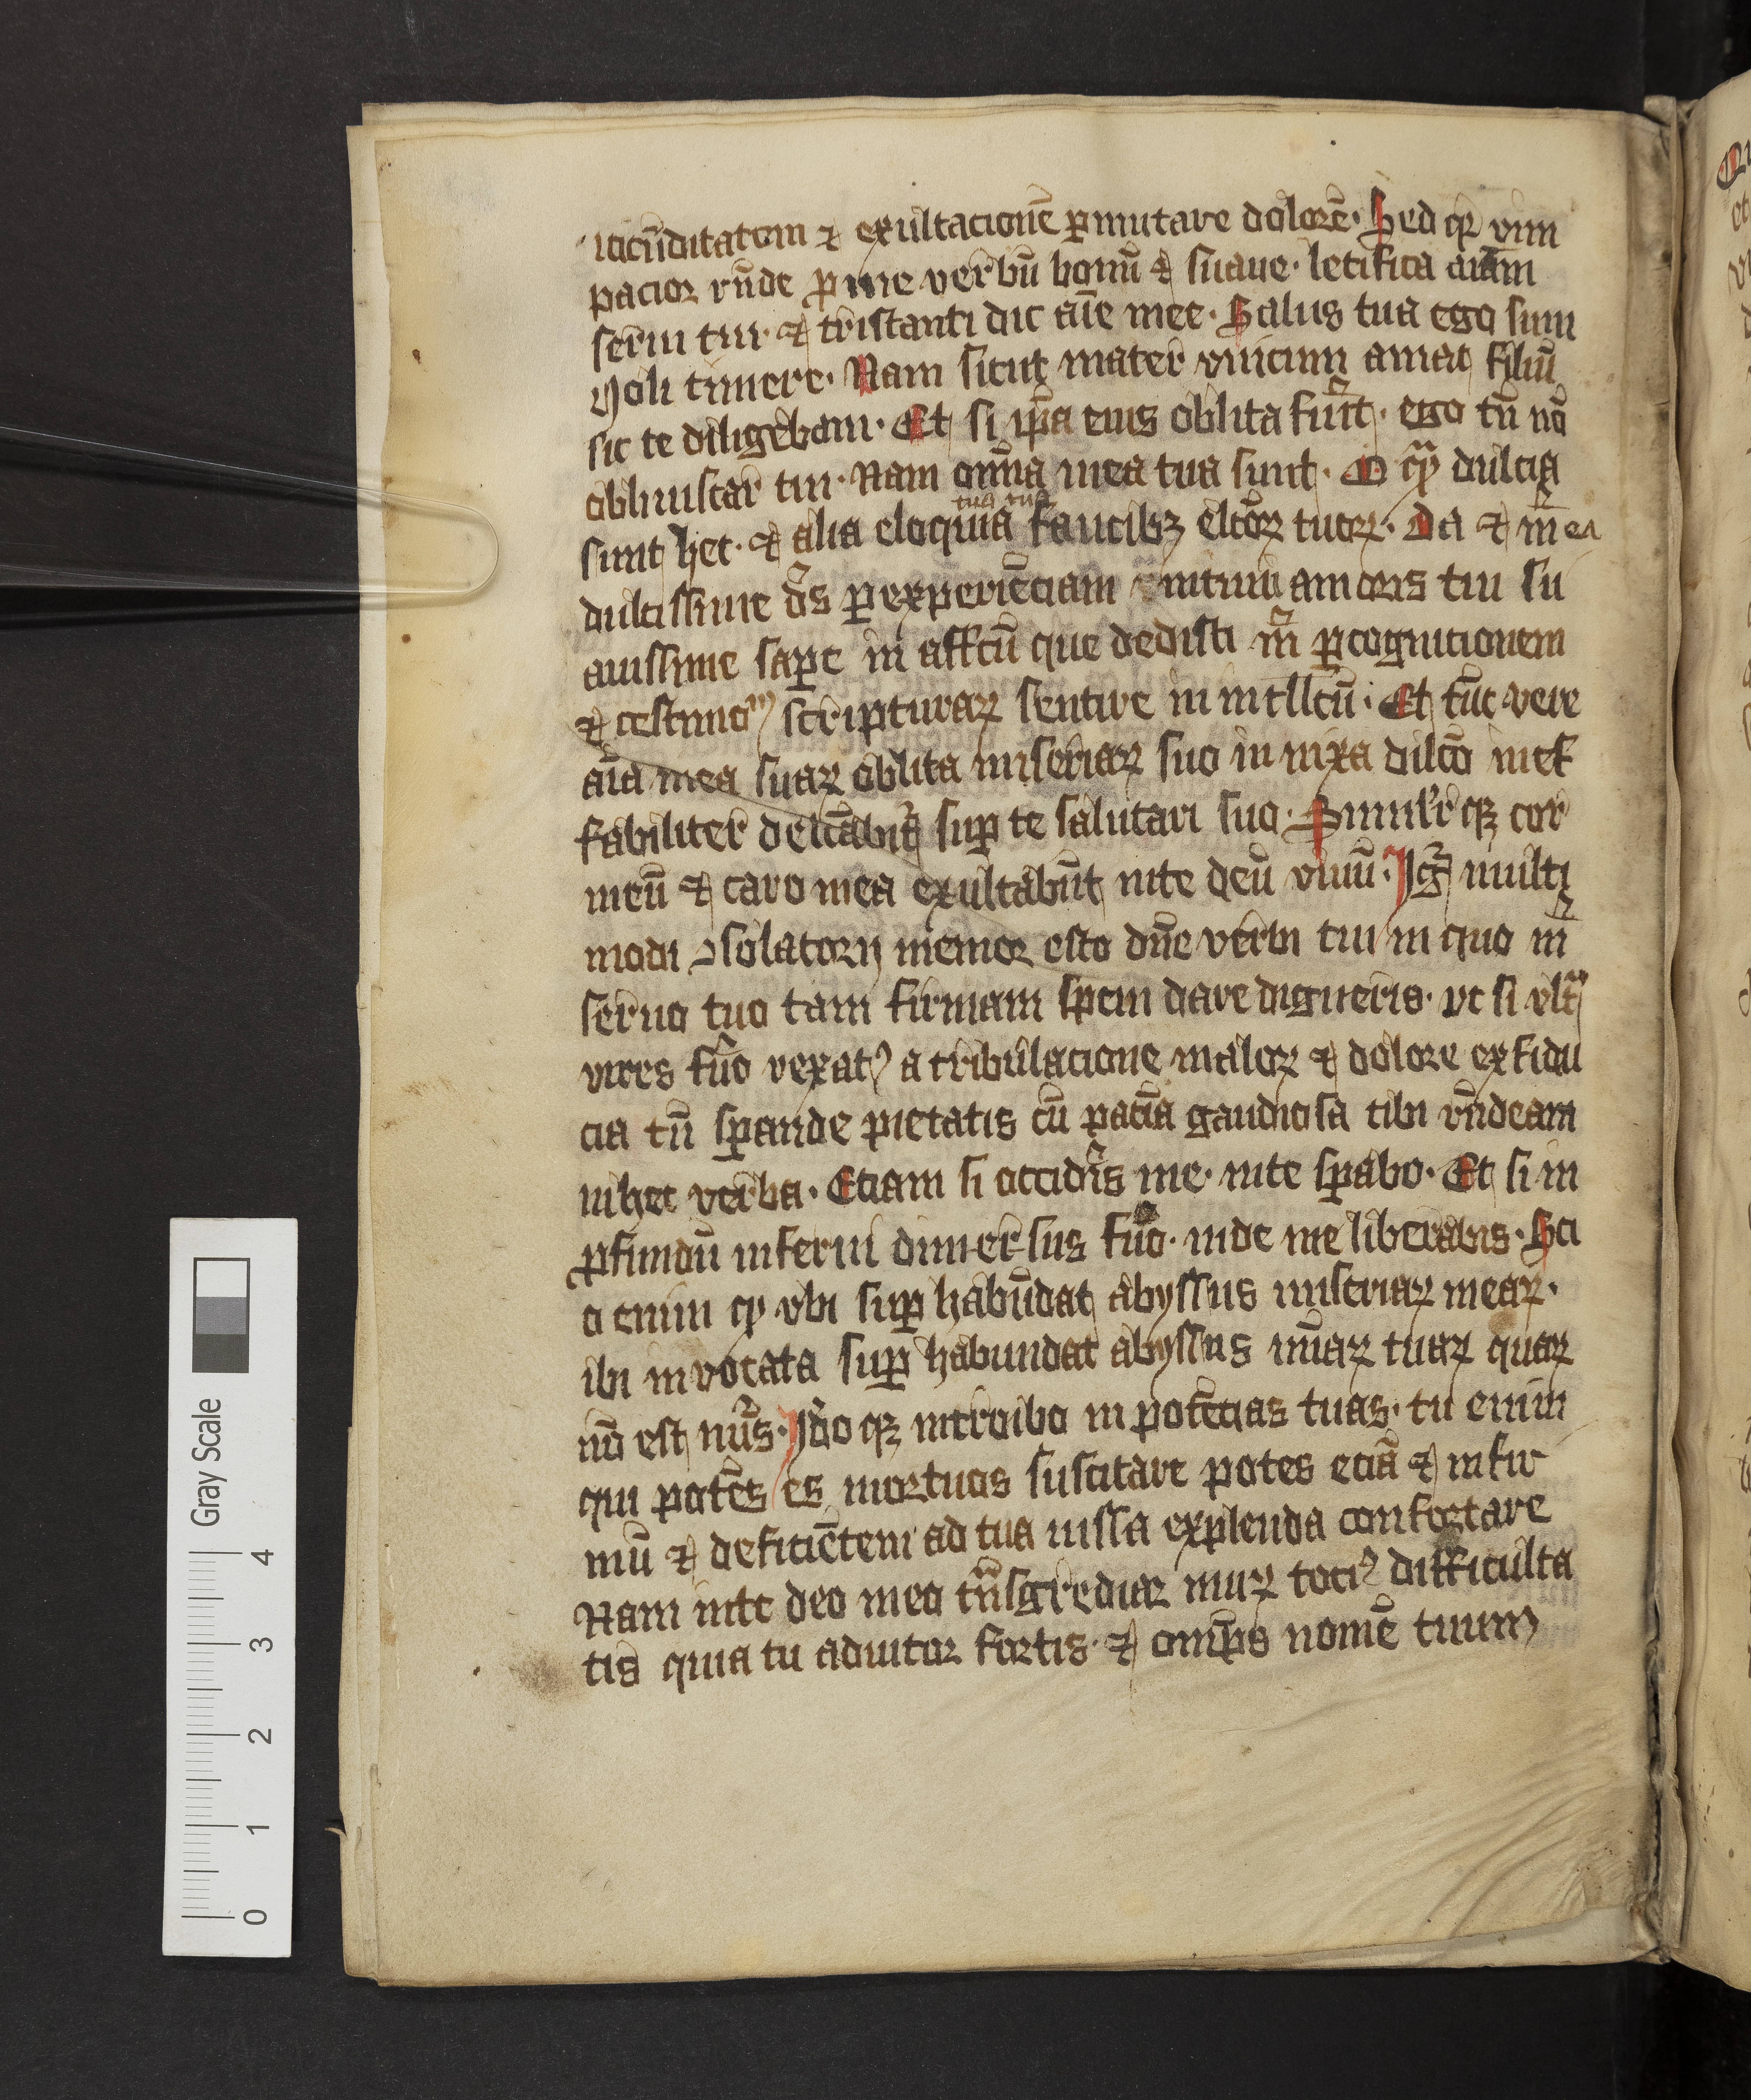 iocūditatem ⁊ exultacionē ꝑmutare dolorē. Sed qꝛ vim
pacior rn̄de ꝓ me verbū bonū ⁊ suaue. letifica aīam
serui tui. ⁊ tristanti dic aīe mee. Salus tua ego sum
Noli timere. Nam sicut mater vnicum amat filiū
sic te diligebam. Et si ip̄a eius oblita fuīt. ego tn̄ nō
obliuiscar tui. Nam om̄ia mea tua sunt. O qͣꝫ dulcia
sunt hec. ⁊ alia eloquia tua faucibꝫ elc̄oꝝ tuoꝝ. Da ⁊ m̄ ea
dulcissime d̄s ꝑ experiēciam intimi amoris tui su
auissime saꝑe in affc̄ū que dedisti m̄ ꝑ cognicionem
⁊ testimoꝫ scripturaꝝ sentire in intll̄cū. Et tūc vere
aīa mea suaꝝ oblita miseriaꝝ suo innixa dilc̄o inef
fabiliter delc̄abit᷑ suꝑ te salutari suo. Simil̄r qꝫ cor
meū ⁊ caro mea exultabūt inte deū viuū. Igr̄ multi
modi ꝯsolatorij memor esto dn̄e verbi tui in quo m̄
seruo tuo tam firmam spem dare digneris. vt si vltͣ
vires fuō vexatꝰ a tribulacione maloꝝ ⁊ dolore ex fidu
cia tn̄ sꝑande pietatis cū paciā gaudiosa tibi rn̄deam
in hec verba. Etiam si occideris me. inte sꝑabo. Et si in
ꝓfundū inferni dimersus fuō. inde me liberabis. Sci
o enim qꝫ vbi suꝑ habūdat abyssus miseriaꝝ meaꝝ.
ibi inuocata suꝑ habundat abyssus mīaꝝ tuaꝝ quaꝝ
nō est nūs. Iđo qꝫ introibo in potēcias tuas. tu enim
qui potēs es mortuos suscitare potes eciā ⁊ infir
mū ⁊ deficiētem ad tua iussa explenda confortare
Nam inte deo meo tͣnsgrediar muꝝ tociꝰ difficulta
tis quia tu adiutor fortis. ⁊ om̄ps nomē tuum